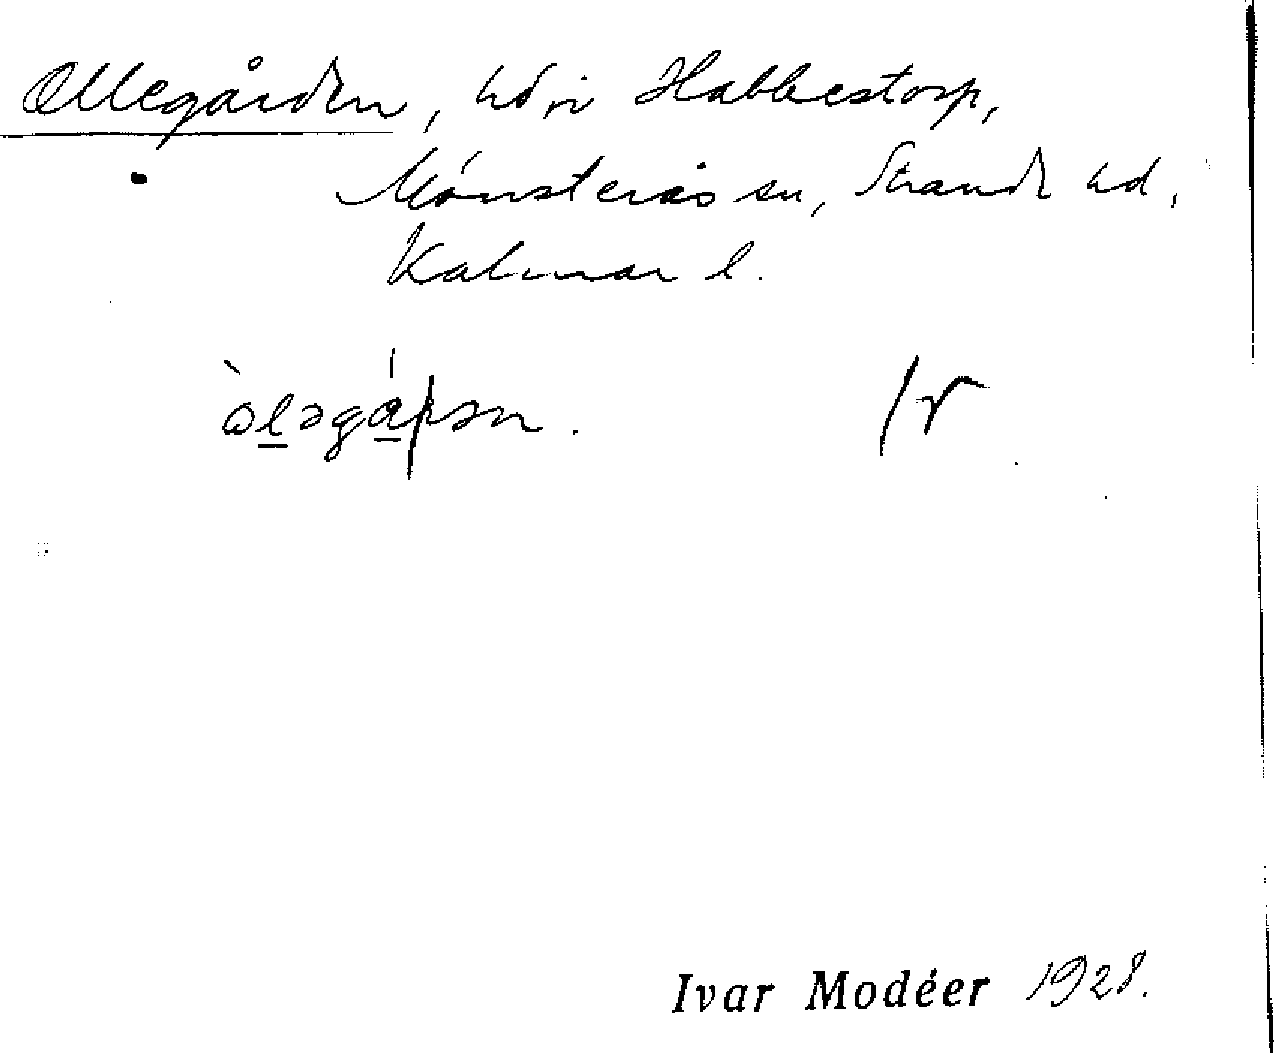 Ollegården, hd i Habbestorp,
Mönsterås sn, Strand hd,
Kalmar l.
Ivar Modéer 1928.